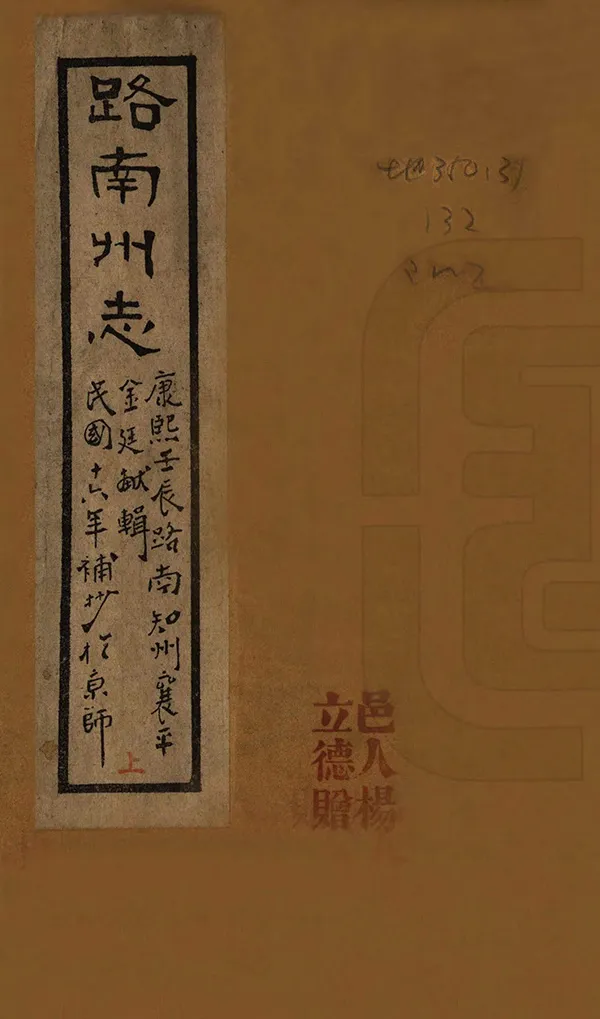 路南州志
康熙壬辰路南知州襄平
金廷献輯
民國十六年補抄於京師
上
地350.131
132
邑人楊
立德贈